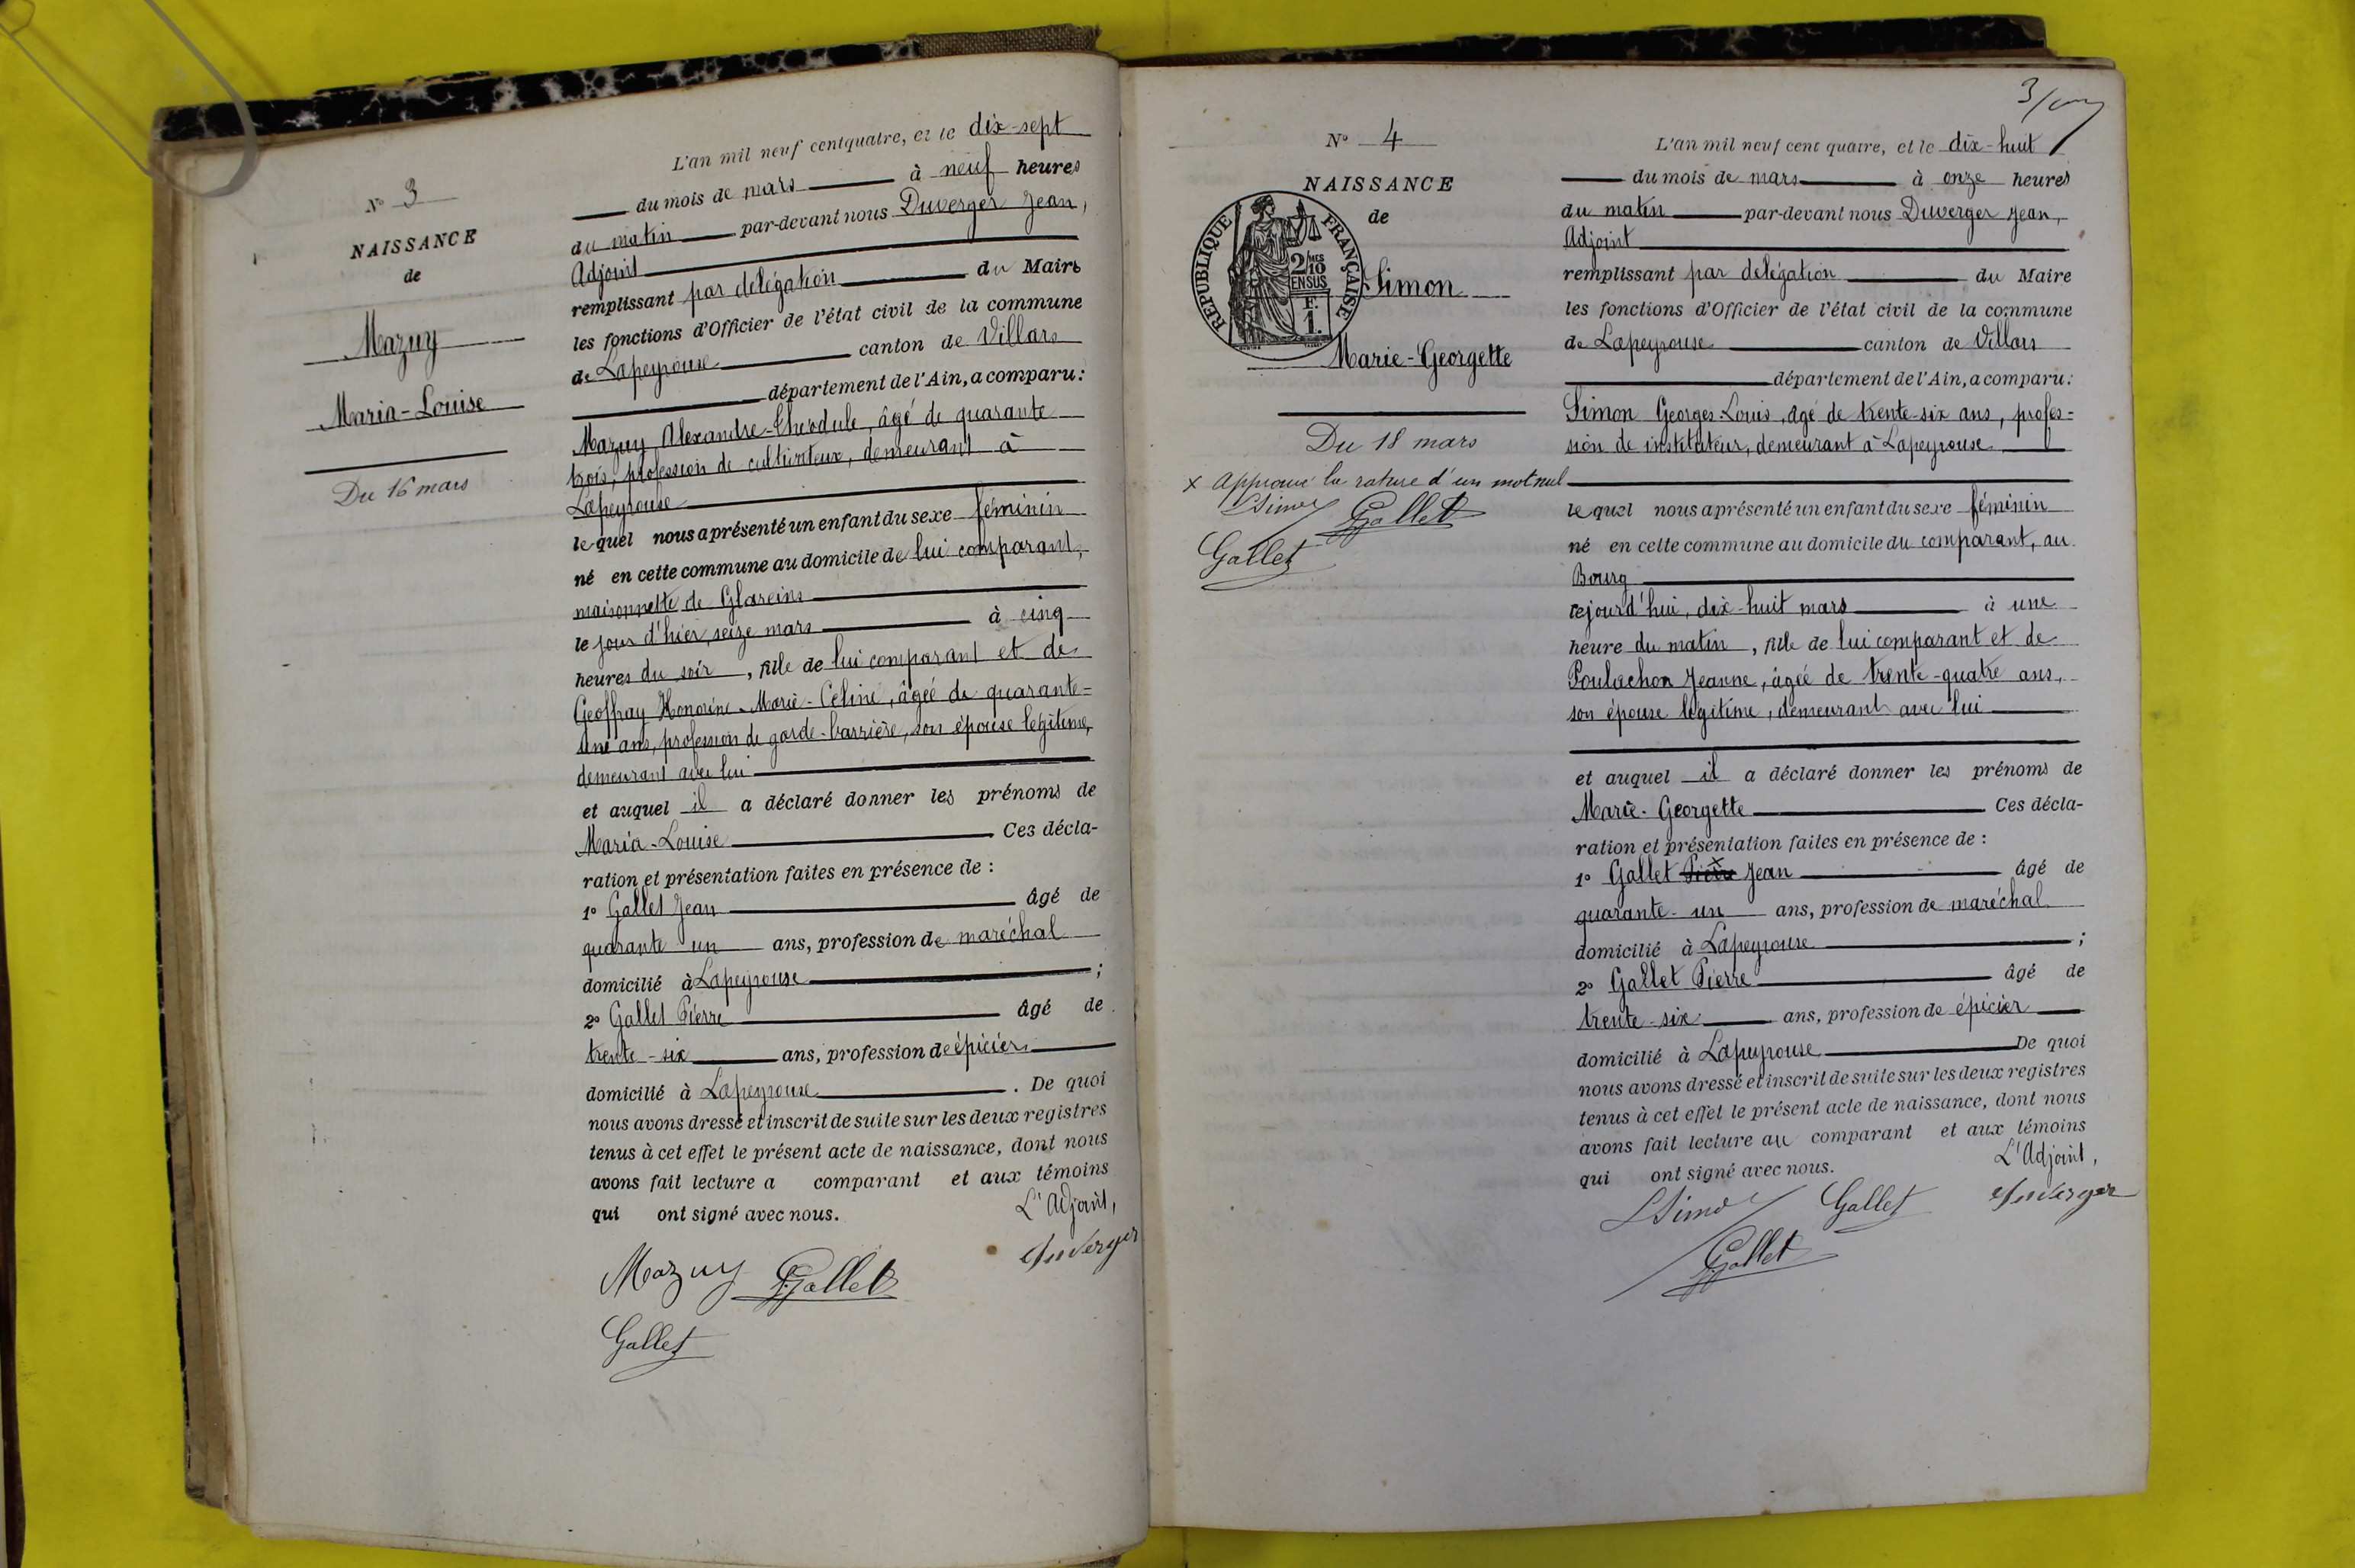 N° 3
NAISSANCE
de
Mazuy
Maria-Louise
Du 16 mars
L'an mil neuf cent quatre, et le dix-sept
du mois de mars à neuf heures
du matin par-devant nous Duverger Jean,
Adjoint
remplissant par délégation du Maire
les fonctions d'Officier de l'état civil de la commune
de Lapeyrouse canton de Villars
département de l'Ain, a comparu:
Mazuy Alexandre-Théodule, âgé de quarante
trois, profession de cultivateur, demeurant à
Lapeyrouse
lequel nous a présenté un enfant du sexe féminin
né en cette commune au domicile de lui comparant,
maisonnette de Glareins
le jour d'hier, seize mars à cinq
heures du soir, fille de lui comparant et de
Geoffray Honorine-Marie-Céline, âgée de quarante-
une ans, profession de garde-barrière, son épouse légitime,
demeurant avec lui
et auquel il a déclaré donner les prénoms de
Maria-Louise Ces décla-
ration et présentation faites en présence de :
1° Gallet Jean âgé de
quarante un ans, profession de maréchal
domicilié à Lapeyrouse ;
2° Gallet Pierre âgé de
trente-six ans, profession de épicier
domicilié à Lapeyrouse . De quoi
nous avons dressé et inscrit de suite sur les deux registres
tenus à cet effet le présent acte de naissance, dont nous
avons fait lecture a comparant et aux témoins
qui ont signé avec nous.
L'Adjoint,
Mazuy P. Gallet Duverger
Gallet
3/
N° 4
NAISSANCE
de
RÉPUBLIQUE FRANÇAISE
2/10MES
EN SUS
F.
1.
Simon
Marie-Georgette
Du 18 mars
x Approuvé la rature d'un mot nul
LSimon P. Gallet
Gallet
L'an mil neuf cent quatre, et le dix-huit
du mois de mars à onze heures
du matin par-devant nous Duverger Jean,
Adjoint
remplissant par délégation du Maire
les fonctions d'Officier de l'état civil de la commune
de Lapeyrouse canton de Villars
département de l'Ain, a comparu:
Simon Georges-Louis, âgé de trente-six ans, profes-
sion de instituteur, demeurant à Lapeyrouse
lequel nous a présenté un enfant du sexe féminin
né en cette commune au domicile du comparant, au
Bourg
cejourd'hui, dix-huit mars à une
heure du matin, fille de lui comparant et de
Poulachon Jeanne, âgée de trente-quatre ans,
son épouse légitime, demeurant avec lui
et auquel il a déclaré donner les prénoms de
Marie-Georgette Ces décla-
ration et présentation faites en présence de :
1° Gallet Pierre x Jean âgé de
quarante-un ans, profession de maréchal
domicilié à Lapeyrouse ;
2° Gallet Pierre âgé de
trente-six ans, profession de épicier
domicilié à Lapeyrouse De quoi
nous avons dressé et inscrit de suite sur les deux registres
tenus à cet effet le présent acte de naissance, dont nous
avons fait lecture au comparant et aux témoins
qui ont signé avec nous.
L'Adjoint,
LSimon Gallet Duverger
P. Gallet